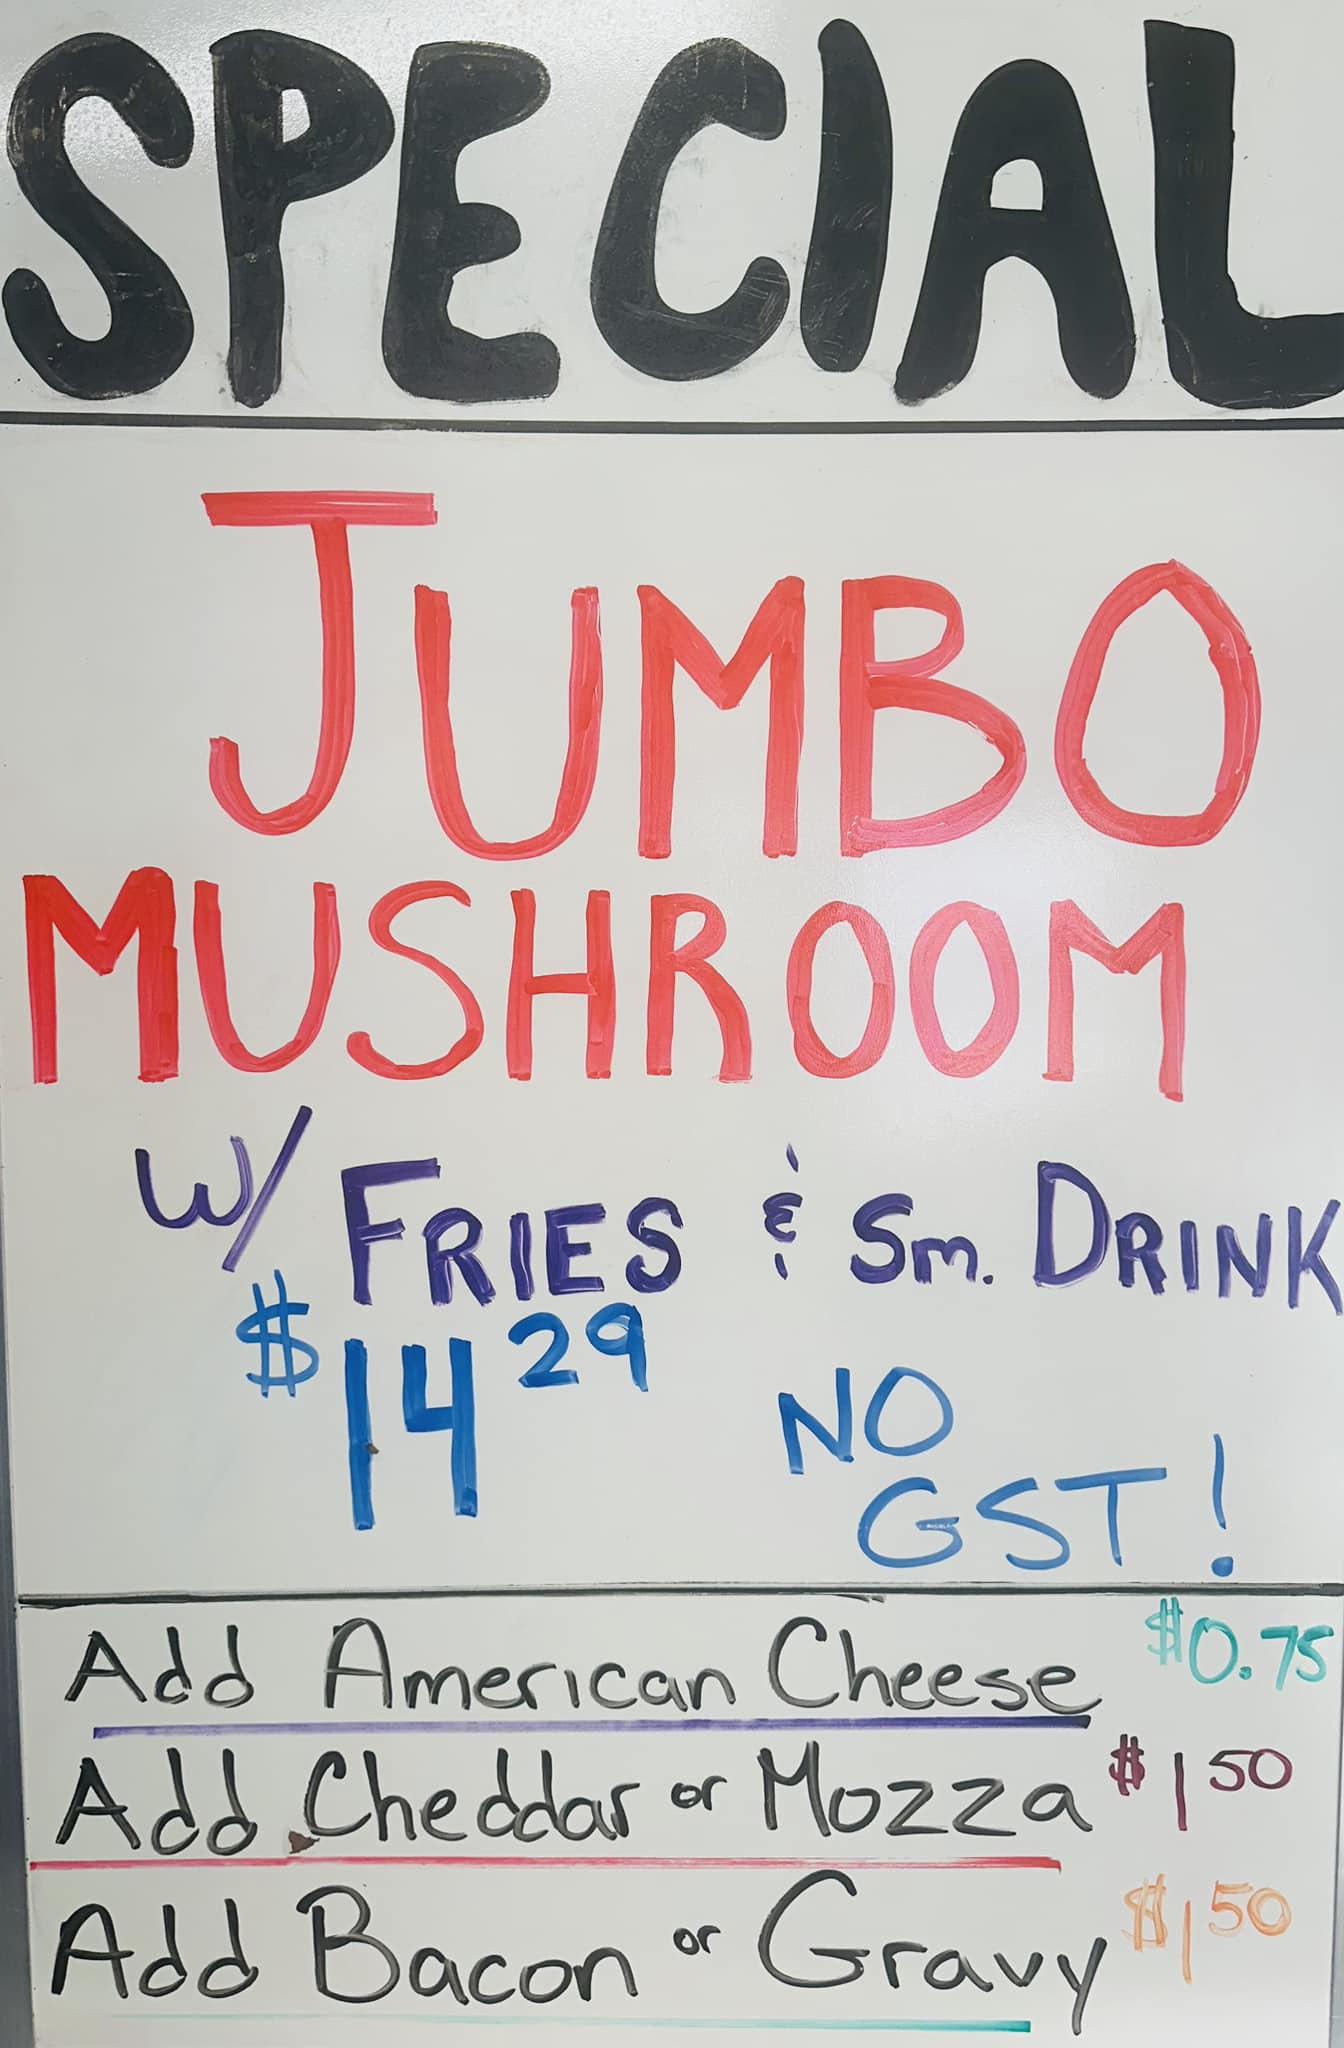 SPECIAL
JUMBO
MUSHROOM
W/ FRIES & Sm. DRINK
$14 29
NO
GST!
Add American Cheese $0.75
Add Cheddar or Mozza $1 50
Add Bacon or Gravy $1 50